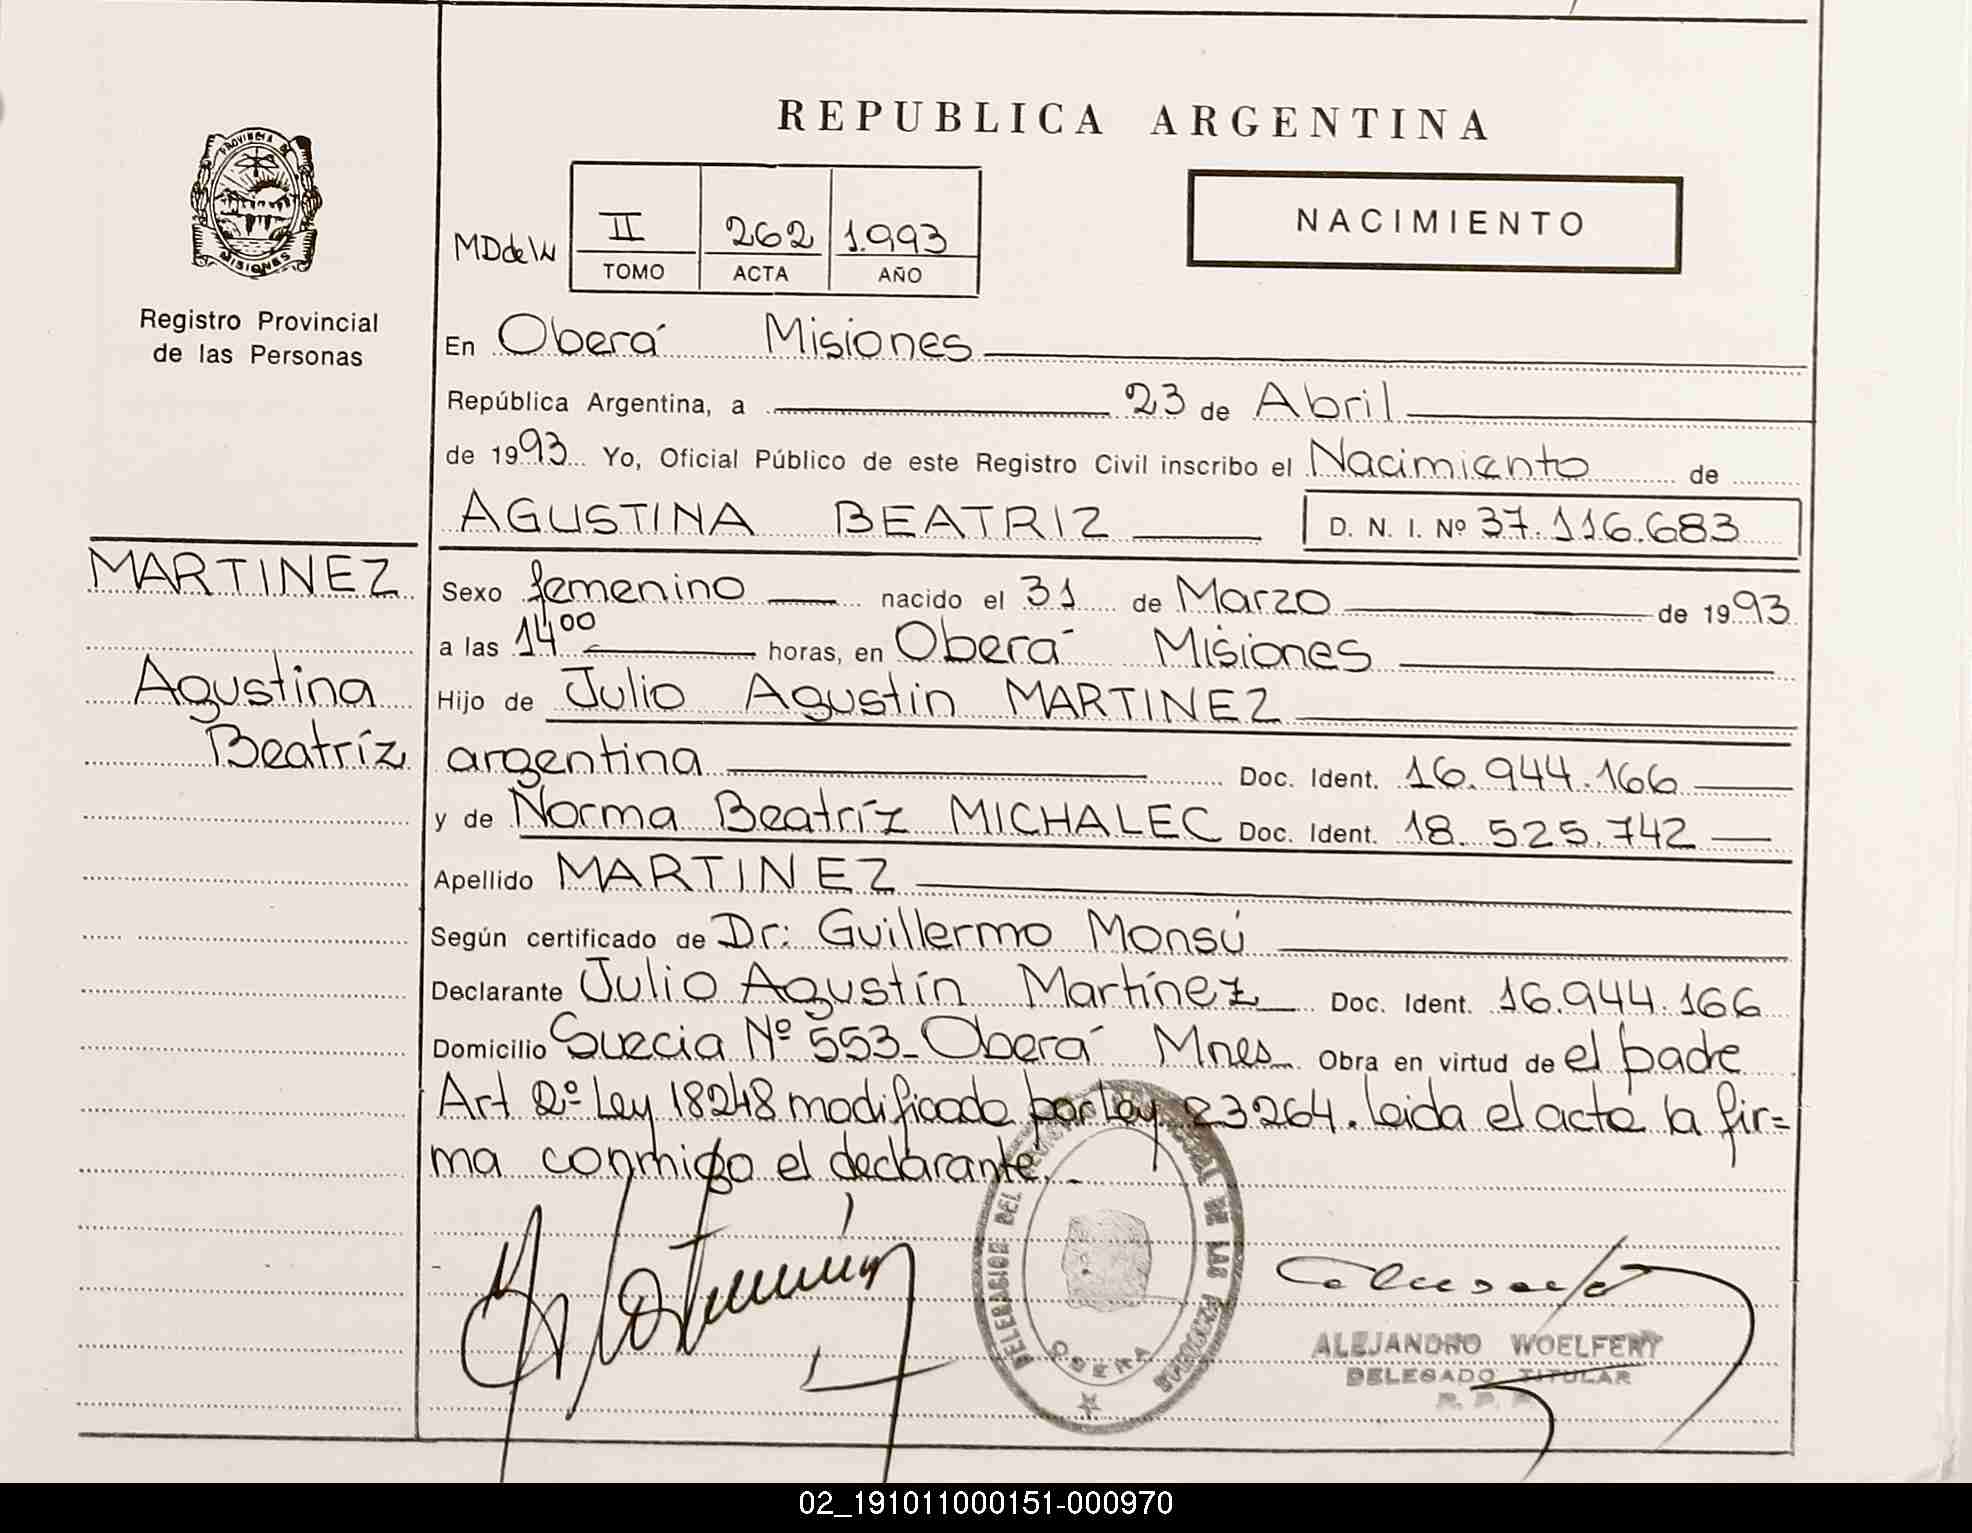 REPUBLICA ARGENTINA
PROVINCIA DE
MISIONES
Registro Provincial
de las Personas
MDdeW
II 262 1.993
TOMO ACTA AÑO
NACIMIENTO
En Oberá Misiones
República Argentina, a 23 de Abril
de 1993 Yo, Oficial Público de este Registro Civil inscribo el Nacimiento de
AGUSTINA BEATRIZ D. N. I. Nº 37.116.683
MARTINEZ
Agustina
Beatríz
Sexo femenino nacido el 31 de Marzo de 1993
a las 14 00 horas, en Oberá Misiones
Hijo de Julio Agustin MARTINEZ
argentina Doc. Ident. 16.944.166
y de Norma Beatríz MICHALEC Doc. Ident. 18.525.742
Apellido MARTINEZ
Según certificado de Dr: Guillermo Monsú
Declarante Julio Agustín Martínez Doc. Ident. 16.944.166
Domicilio Suecia Nº 553-Oberá Mnes Obra en virtud de el padre
Art 2º Ley 18248 modificado por Ley 23264. leida el acta la fir=
ma conmigo el declarante.-
DELEGACION DEL DE LAS PERSONAS
OBERA
ALEJANDRO WOELFERT
DELEGADO TITULAR
R. P. P.
02_191011000151-000970